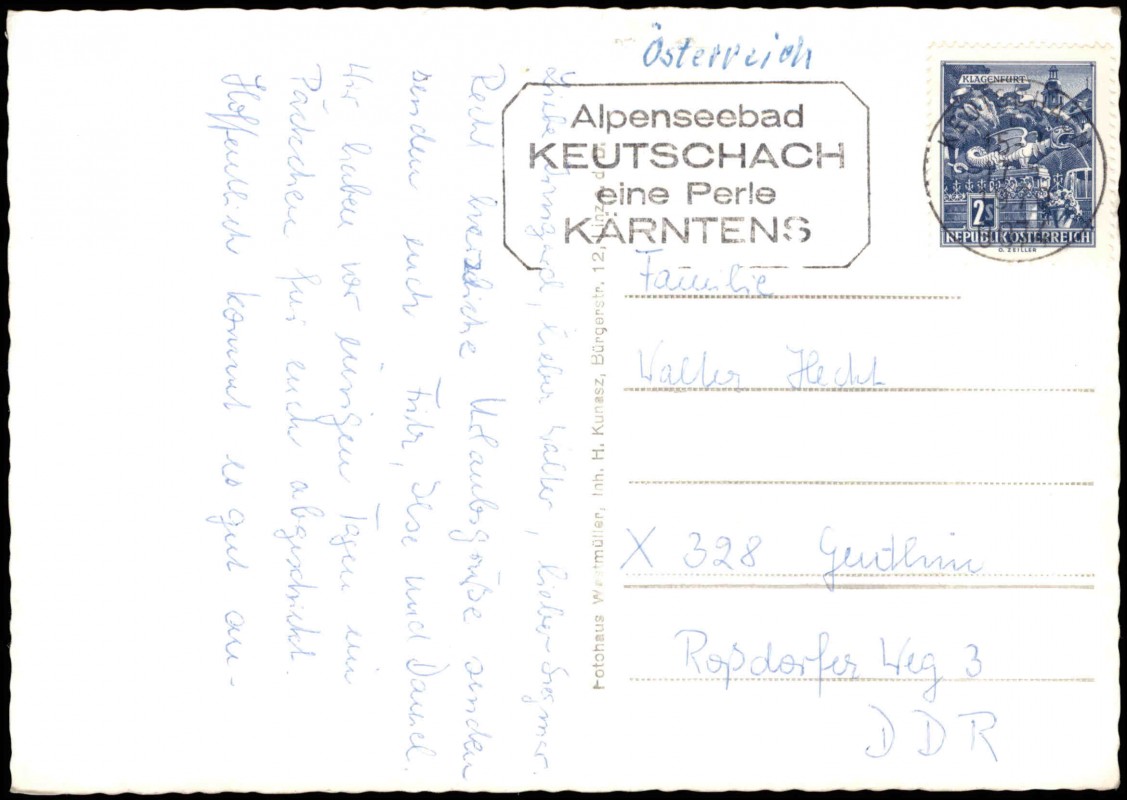 Österreich
Alpenseebad
KEUTSCHACH
eine Perle
KÄRNTENS
KLAGENFURT
2S
REPUBLIK ÖSTERREICH
O. ZEILLER
Liebe Irmgard, lieber Walter, lieber Siegmar.
Recht herzliche Urlaubsgrüße senden
senden euch Fritz, Ilse und Daniel.
Wir haben vor einigen Tagen ein
Päckchen für euch abgeschickt.
Hoffentlich kommt es gut an -
Fotohaus Westmüller, Inh. H. Kunasz, Bürgerstr. 12, Linz a. d. D.
Familie
Walter Hecht
X 328 Genthin
Roßdorfer Weg 3
DDR